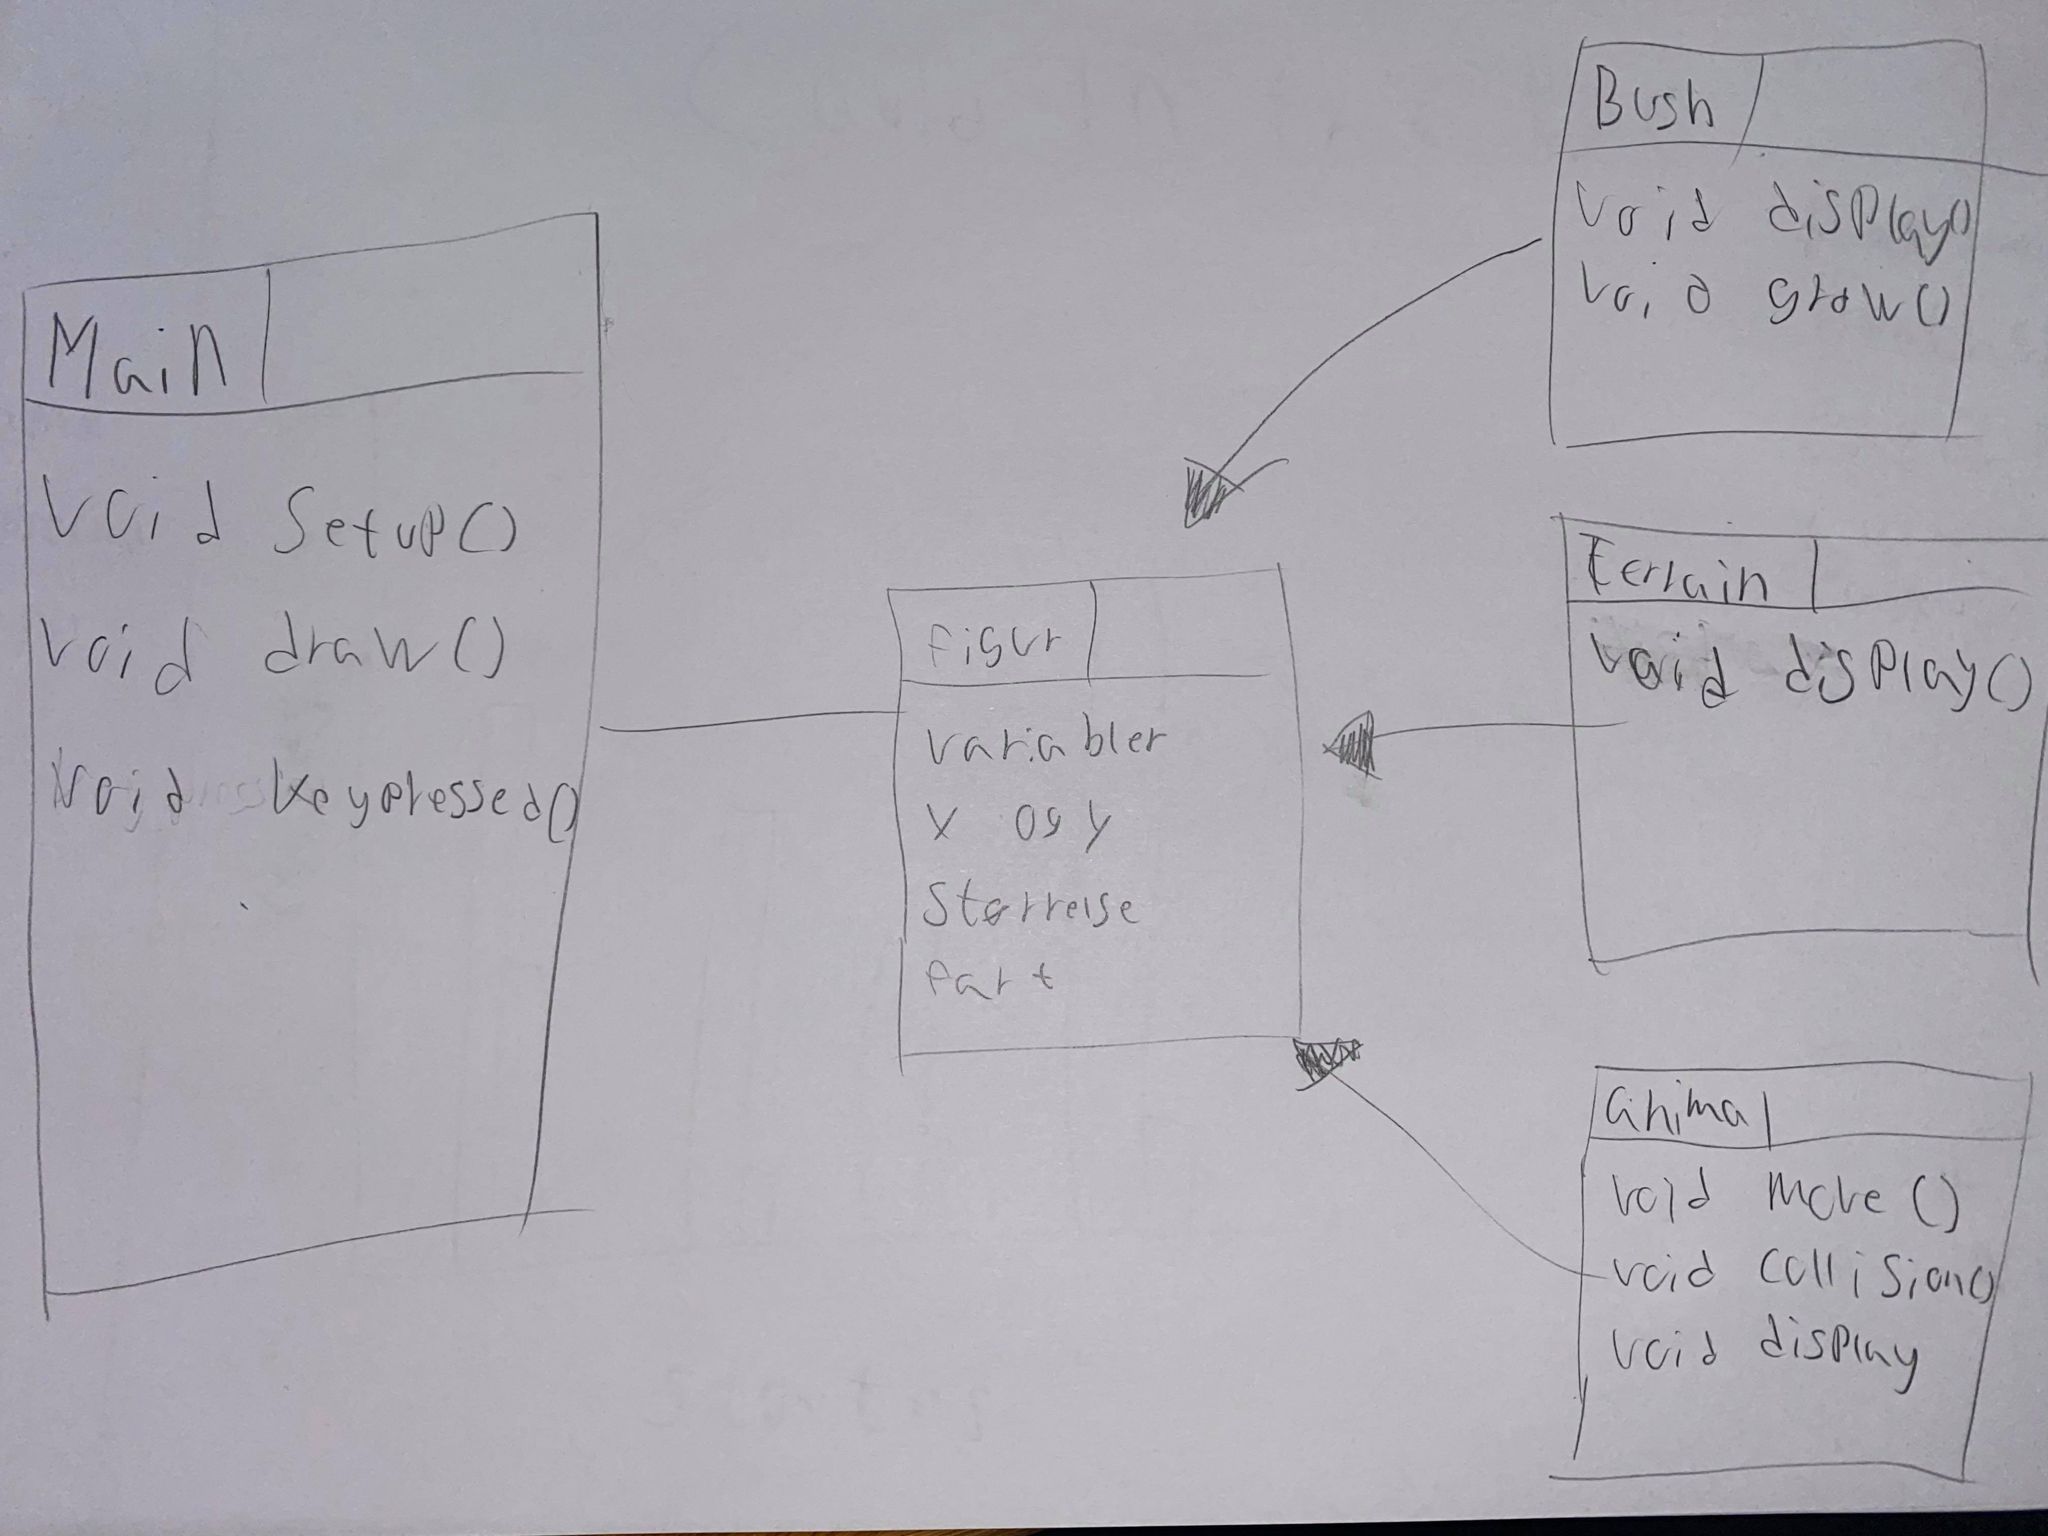 Main
void setup()
void draw()
void keypressed()
figur
variabler
x og y
Størrelse
fart
Bush
void display()
void grow()
terrain
void display()
animal
void move()
void collision()
void display